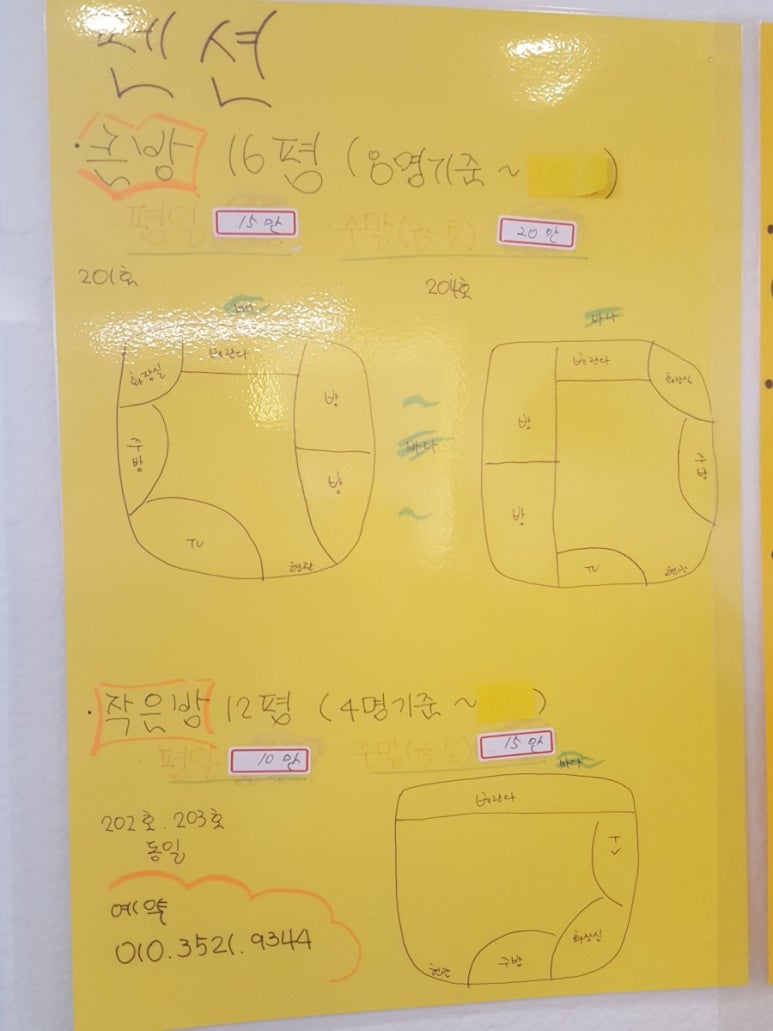 펜션
· 큰방 16평 (8명기준 ~ )
· 평일 15만 · 주말(금·토) 20만
201호 204호
바다 바다
화장실 베란다 방
베란다 화장실
주방 방
바다
방 주방
방
TV 현관
TV 현관
· 작은방 12평 (4명기준 ~ )
· 평일 10만 · 주말(금·토) 15만
바다
202호. 203호
동일
베란다
TV
화장실
주방
현관
예약
010.3521.9344